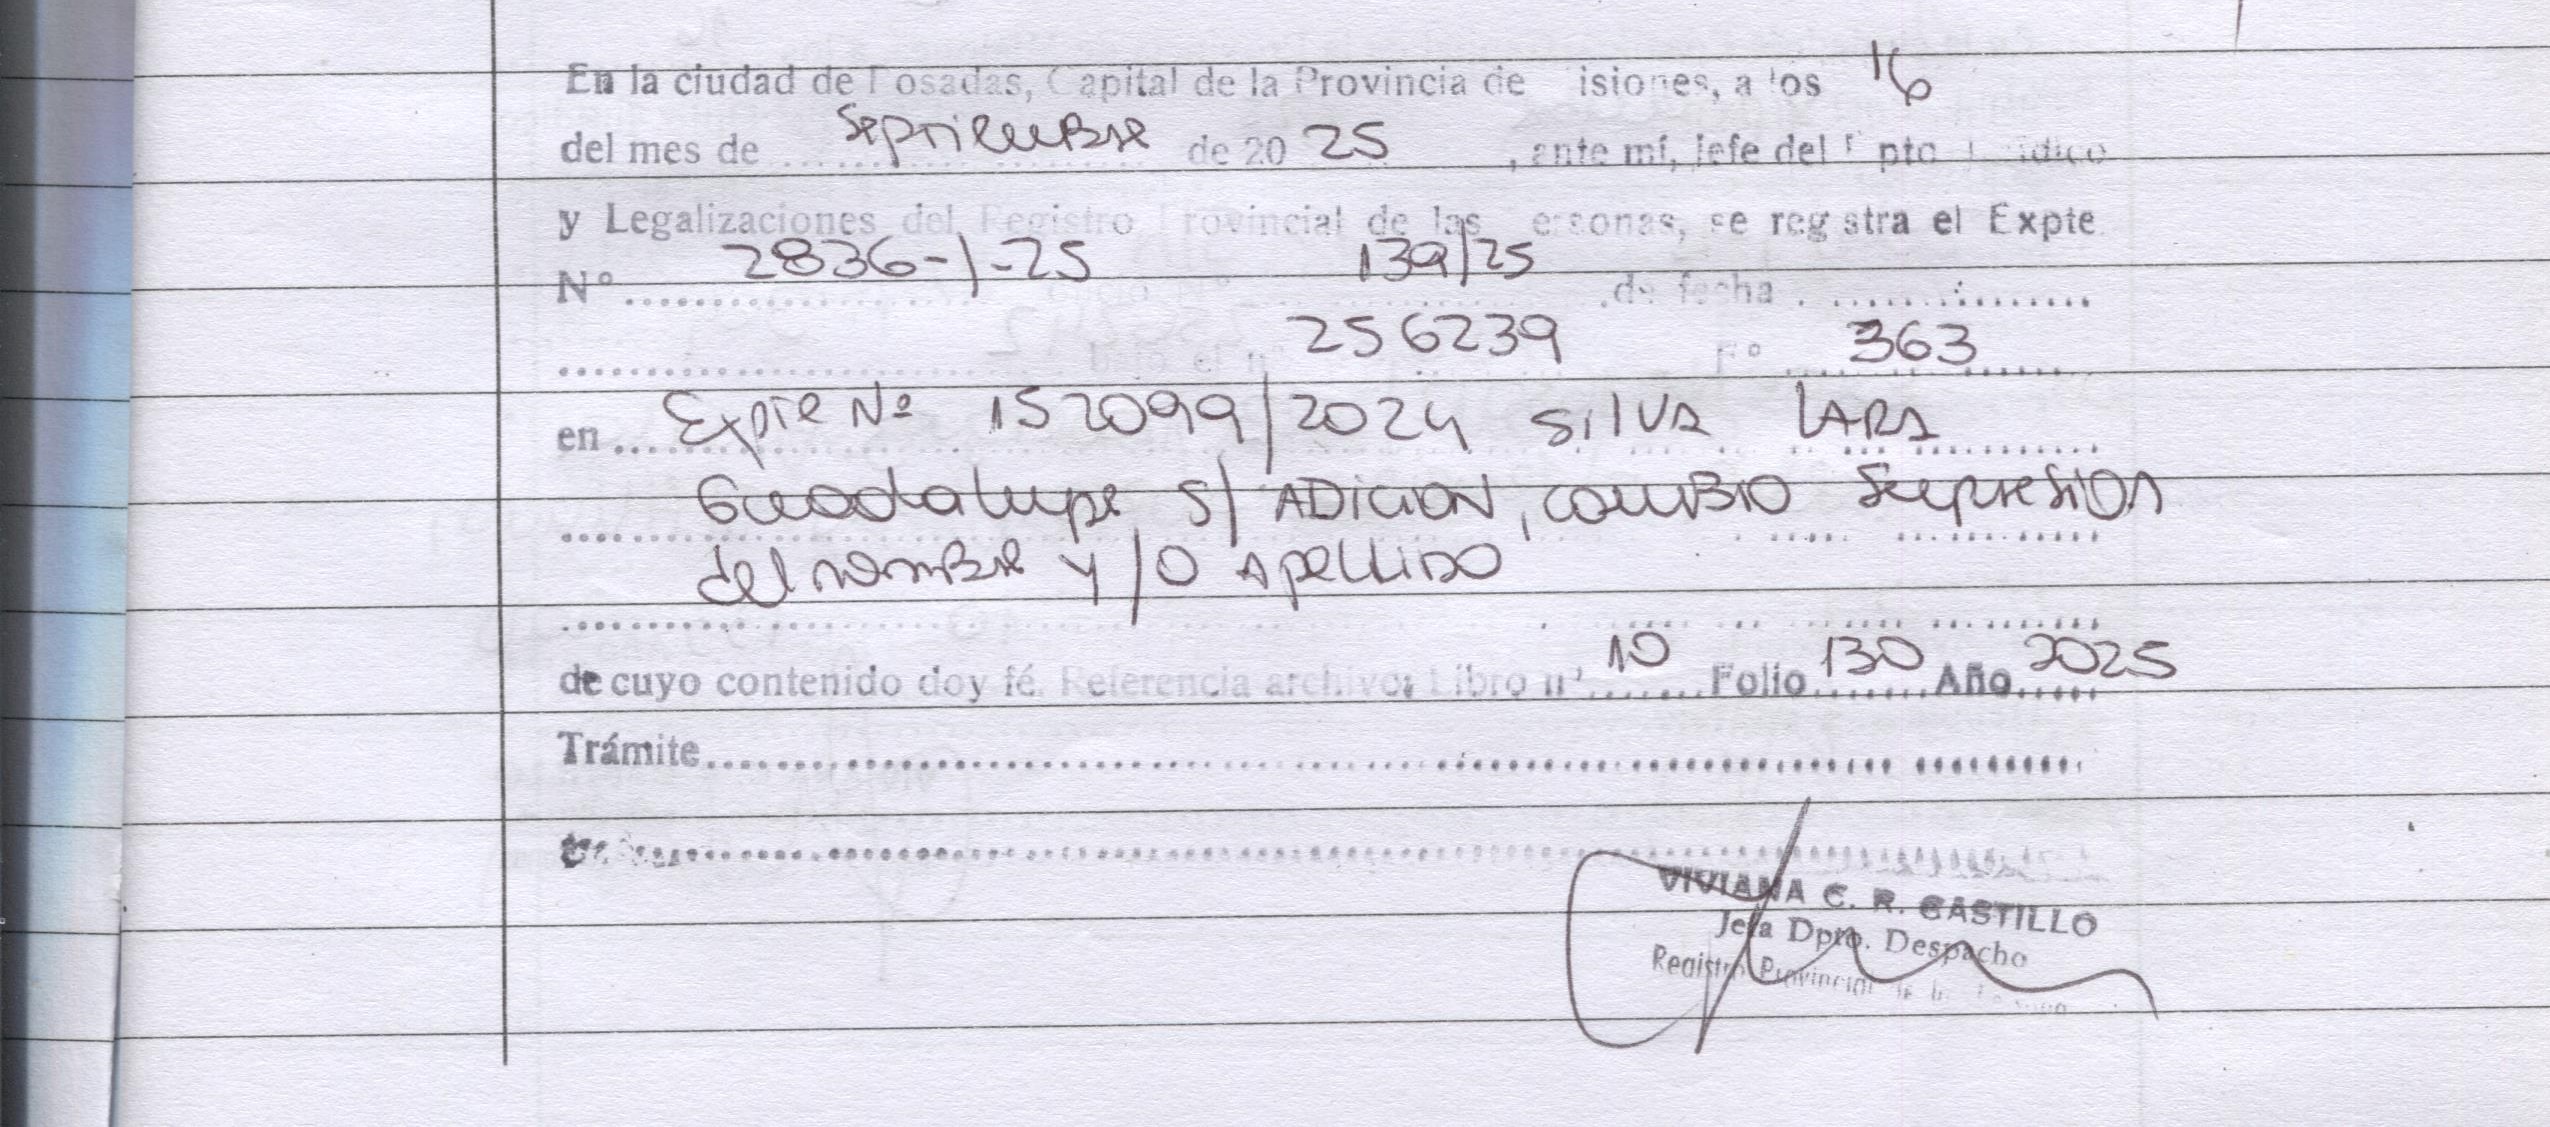 En la ciudad de Posadas, Capital de la Provincia de Misiones, a los 16
del mes de Septiembre de 20 25, ante mí, Jefe del Dpto Jurídico
y Legalizaciones del Registro Provincial de las Personas, se registra el Expte
Nº 2836-1-25 139/25 de fecha
bajo el nº 256239 Fº 363
en Expte Nº 152099/2024 Silva Lara
Guadalupe S/ ADICION, cambio Supresion
del nombre y/o Apellido
de cuyo contenido doy fé. Referencia archivo: Libro nº 10 Folio 130 Año 2025
Trámite
VIVIANA C. R. CASTILLO
Jefa Dpto. Despacho
Registro Provincial de las Personas